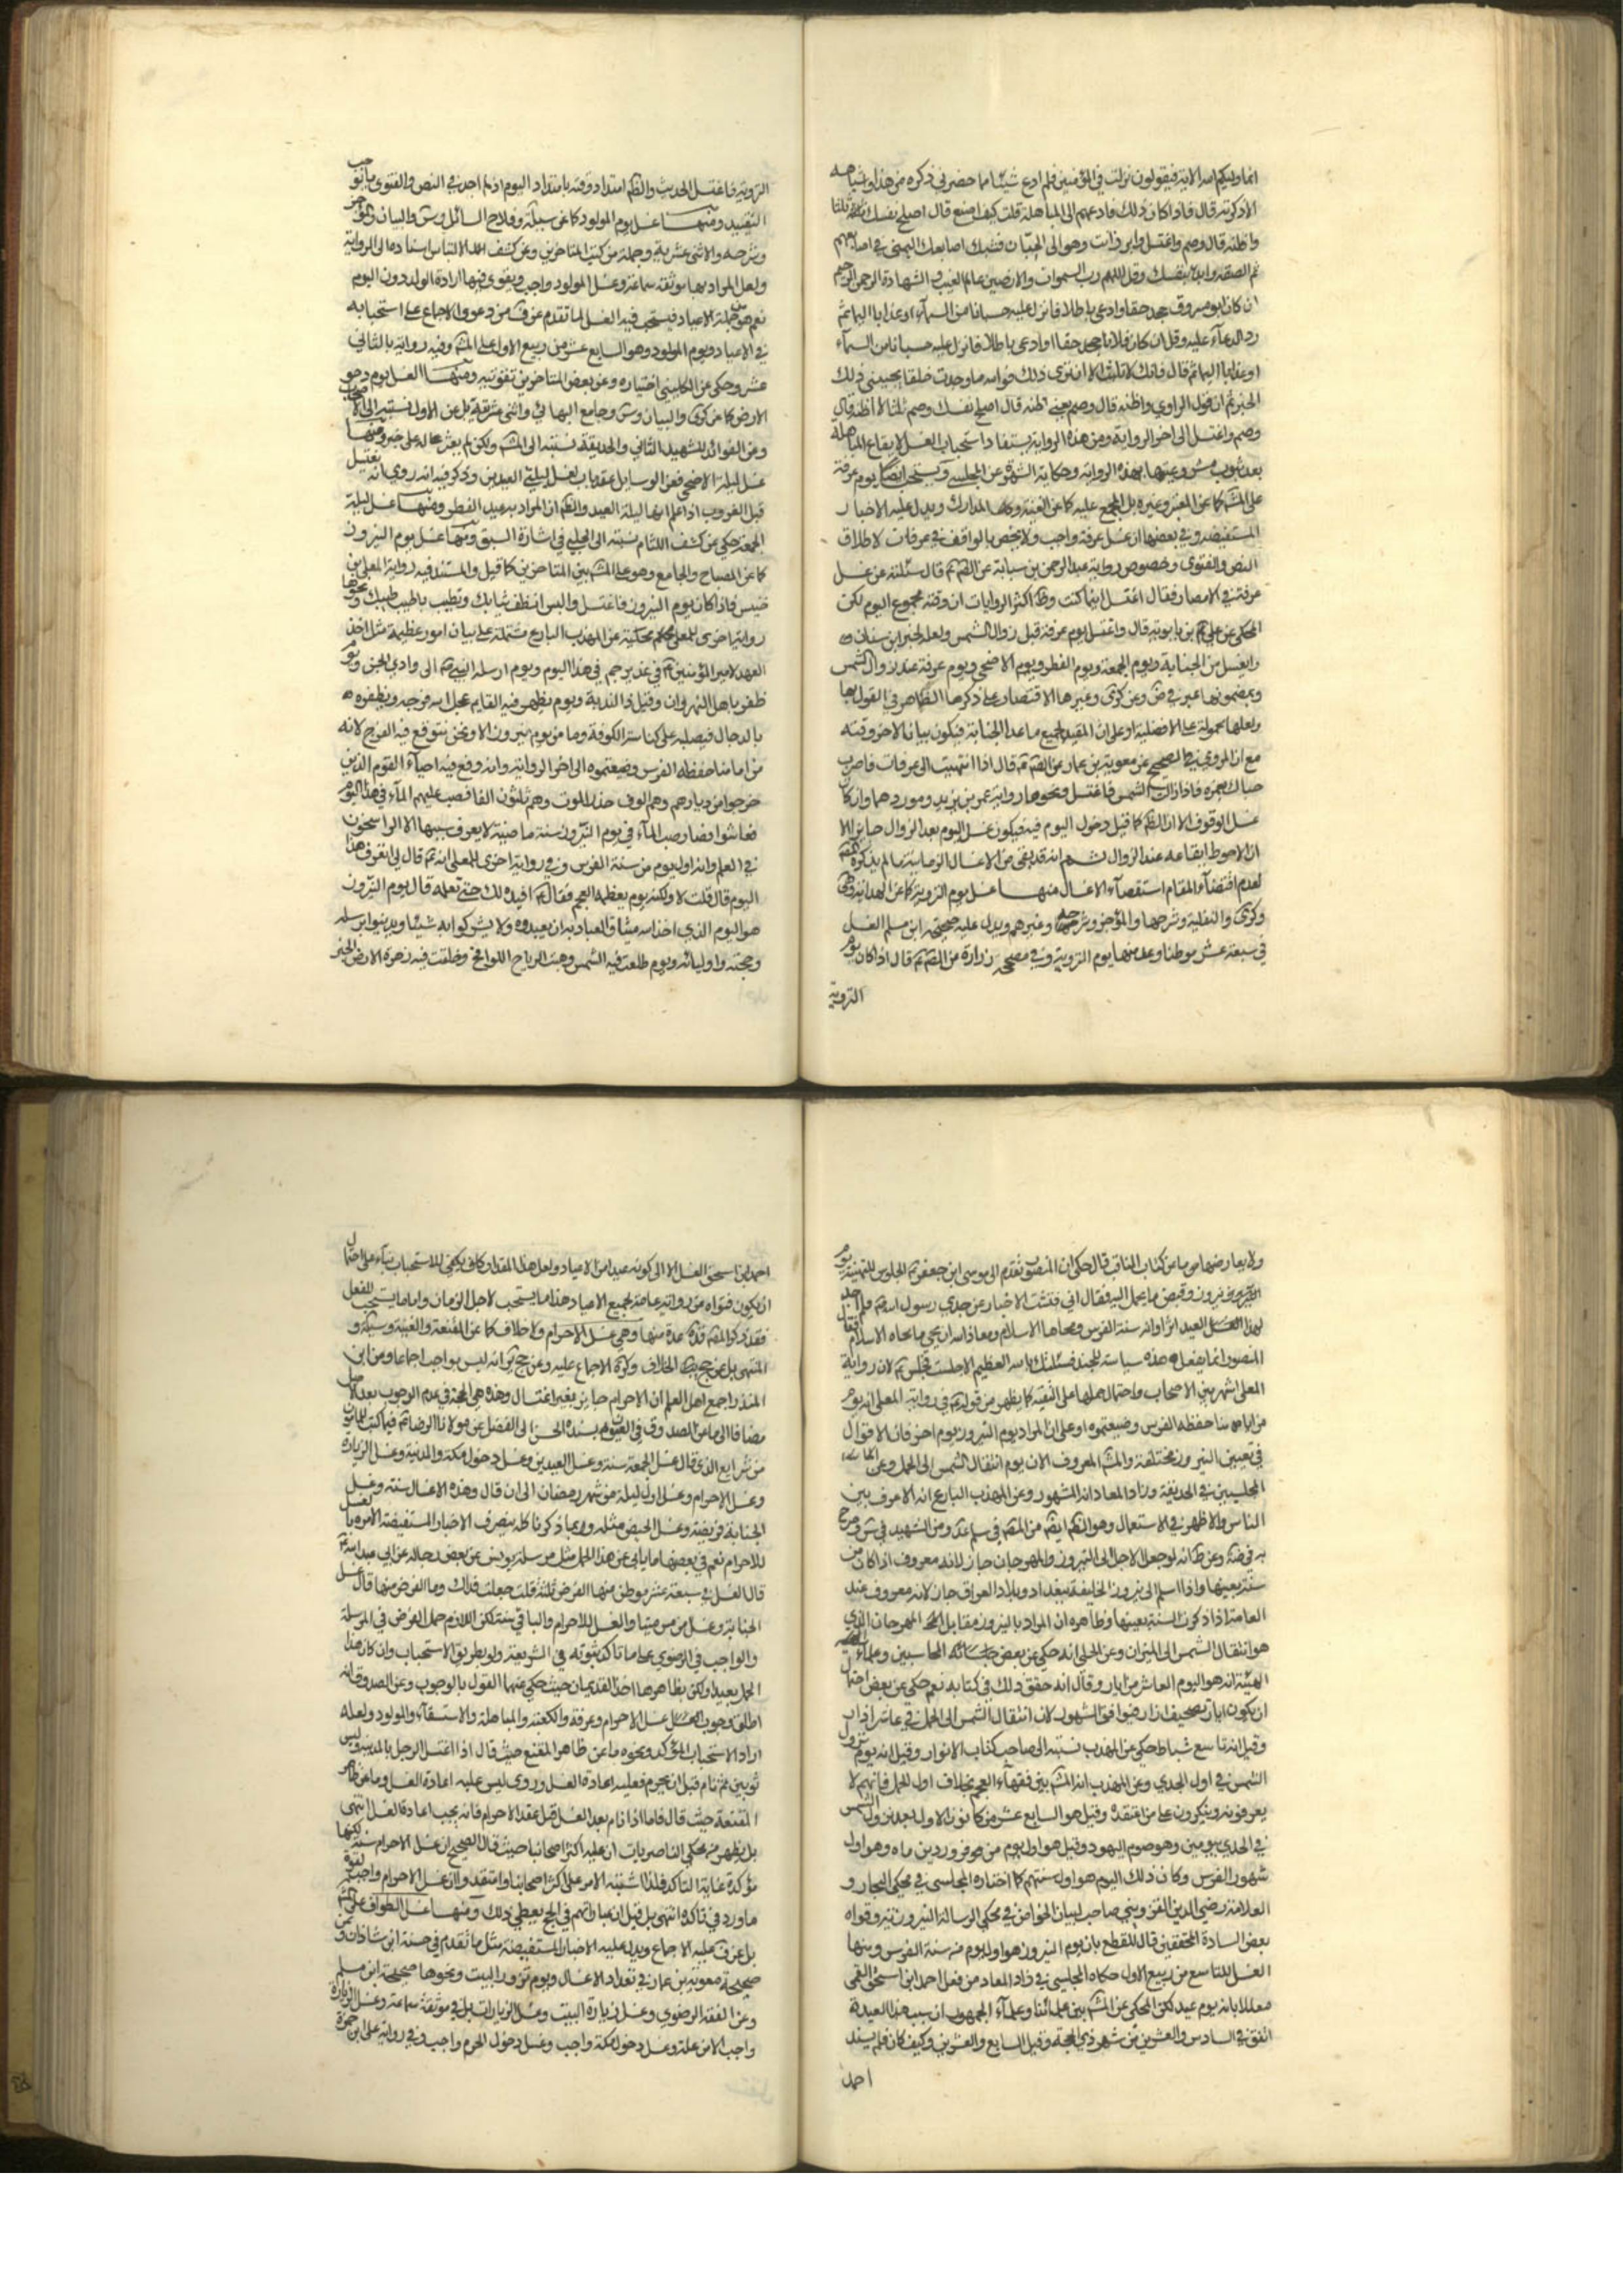 انما وليكم الله الاية فيقولون نزلت في المؤمنين فلم ادع شيئا مما حضرني ذكره من هذا وشباهه
الا ذكرته قال فاذا كان ذلك فادعهم الى المباهلة قلت كيف اصنع قال اصلح نفسك ثلثا
واظنه قال وصم واغتسل وابرز انت وهو الى الجبان فشبك اصابعك اليمنى في اصابعهم
ثم انصفه وابدء بنفسك وقل اللهم رب السموات والارضين عالم الغيب والشهادة الرحمن الرحيم
ان كان ابو مسروق جحد حقا وادعى باطلا فانزل عليه حسبانا من السماء او عذابا اليما ثم
رد الدعاء عليه وقل ان كان فلانا جحد حقا او ادعى باطلا فانزل عليه حسبانا من السماء
او عذابا اليما ثم قال فانك لا تلبث الا ان ترى ذلك فوالله ما وجدت خلقا يجيبني ذلك
الخبر ثم ان قول الراوي واظنه قال وصم يعني اظنه قال اصلح نفسك وصم ثلثا لا اظنه قال
وصم واغتسل الى اخر الرواية ومن هذه الرواية يستفاد استحباب الغسل لايقاع المباهلة
بعد ثبوت مشروعيتها بهذه الرواية وحكاية الشهرة عن المجلسي ويستحب ايضا يوم عرفة
على المش كما عن المعتبر وغيره بل المجمع عليه كما عن الغنية وكما المدارك ويدل عليه الاخبار
المستفيضة وفي بعضها ان غسل عرفة واجب ولا يختص بالواقف في عرفات لاطلاق
النص والفتوى وخصوص رواية عبد الرحمن بن سيابة عن الصم قال سئلته عن غسل
عرفة في الامصار فقال اغتسل اينما كنت وظ اكثر الروايات ان وقته مجموع اليوم لكن
المحكي عن علي بن بابويه قال واغتسل يوم عرفة قبل زوال الشمس ولعله لخبر ابن سنان
والغسل من الجنابة ويوم الجمعة ويوم الفطر ويوم الاضحى ويوم عرفة عند زوال الشمس
ولعلها محمولة على الافضلية او على ان المقيد لجميع ما عدا الجنابة فيكون بيانا لاخر وقته
مع ان المروي في الصحيح عن معوية بن عمار عن الصم قال اذا انتهيت الى عرفات فاضرب
خباك بنمرة فاذا زالت الشمس فاغتسل ونحوها رواية عمر بن يزيد وموردهما وان كان
غسل الوقوف الا ان الظم كما قيل دخول اليوم فيه فيكون غسل اليوم بعد الزوال جايزا الا
ان الاحوط ايقاعه عند الزوال ثم انه قد بقي من الاغسال الزمانية ما لم يذكره المص
لعدم اقتضاء المقام استقصاء الاغسال منها غسل يوم التروية كما عن الهداية
وكرى والنفلية وشرحها والموجز وشرحه وغيرهم ويدل عليه صحيحة ابن مسلم الغسل
في سبعة عشر موطنا وعد منها يوم التروية وفي مصححة زرارة عن الصم قال اذا كان يوم
التروية
التروية فاغتسل الحديث والظم امتداد وقته بامتداد اليوم اذ لم اجد في النص والفتوى ما يوجب
التقييد ومنها غسل يوم المولود كما عن سبيلة وفلاح السائل وس والبيان والموجز
وشرحه والاثني عشرية وجملة من كتب المتاخرين وعن كشف الالتباس اسنادها الى الرواية
ولعل المراد بها موثقة سماعة وغسل المولود واجب ويقوى فيها ارادة الولد دون اليوم
نعم هو من جملة الاعياد فيستحب فيه الغسل لما تقدم عن ف من دعوى الاجماع على استحبابه
في الاعياد ويوم المولود وهو السابع عشر من ربيع الاول على المش وفيه رواية بالثاني
عشر وحكي عن الكليني اختياره وعن بعض المتاخرين تقويته ومنها الغسل يوم دحو
الارض كما عن كرى والبيان وس وجامع البهائي واثني عشرية بل عن الاول نسبته الى الاصحاب
وعن الفوائد للشهيد الثاني والحديقة نسبته الى المش ولكن لم يعثر حاله على خبر ومنها
غسل ليلة الاضحى فعن الوسايل عقد باب لغسل ليلتي العيدين وذكر فيه انه روي انه يغتسل
قبل الغروب اذا علم انها ليلة العيد والظم ان المراد به عيد الفطر ومنها غسل ليلة
الجمعة حكي عن كشف اللثام نسبته الى الحلبي في اشارة السبق ومنها غسل يوم النيروز
كما عن المصباح والجامع وهو على المش بين المتاخرين كما قيل والمستند فيه رواية المعلى بن
خنيس فاذا كان يوم النيروز فاغتسل والبس انظف ثيابك وتطيب باطيب طيبك ونحوها
رواية اخرى للمعلى محكية عن المهذب البارع مشتملة على بيان امور عظيمة مثل اخذ
العهد لامير المؤمنين في غدير خم في هذا اليوم ويوم ارسله النبي الى وادي الجن ويوم
ظفر باهل النهروان وقتل ذا الثدية ويوم يظهر فيه القايم عجل الله فرجه ويظفره
بالدجال فيصلبه على كناسة الكوفة وما من يوم نيروز الا ونحن نتوقع فيه الفرج لانه
من ايامنا حفظه الفرس وضيعتموه الى اخر الرواية وانه وقع فيه احياء القوم الذين
خرجوا من ديارهم وهم الوف حذر الموت وهم ثلثون الفا فصب عليهم الماء في هذا اليوم
فعاشوا فصار صب الماء في يوم النيروز سنة ماضية لا يعرف سببها الا الراسخون
في العلم وانه اول يوم من سنة الفرس وفي رواية اخرى للمعلى انه قال لي اتعرف هذا
اليوم قال قلت لا ولكنه يوم يعظمه العجم فقال افيدك لك حتى تعلمه قال يوم النيروز
هو اليوم الذي اخذ الله ميثاق العباد به ان يعبدوه ولا يشركوا به شيئا ويدينوا برسله
وحججه واوليائه ويوم طلعت فيه الشمس وهبت الرياح اللواقح وخلقت فيه زهرة الارض الخبر
ولا يعارضها ما عن كتاب المناقب قال حكي ان المنصور تقدم الى موسى ابن جعفر بالجلوس للتهنية يوم
النيروز وقبض ما يحمل اليه فقال اني فتشت الاخبار عن جدي رسول الله فلم اجد
لهذا العيد اثرا وانه سنة الفرس ومحاها الاسلام ومعاذ الله ان يحيي ما محاه الاسلام فقال
المنصور انما يفعل هذه سياسة للجند فسئلتك بالله العظيم الا جلست فجلس لان رواية
المعلى اشهر بين الاصحاب واحتمال حملها على التقية كما يظهر من قوله في رواية المعلى انه يوم
من ايامنا حفظه الفرس وضيعتموه او على ان المراد يوم النيروز يوم اخر فان الاقوال
في تعيين النيروز مختلفة والمش المعروف الان يوم انتقال الشمس الى الحمل وعن
المجلسيين في الحديقة وزاد المعاد انه المشهور وعن المهذب البارع انه الاعرف بين
الناس والاظهر في الاستعمال
سنة بعينها واذا اسلم الى نيروز الخليفة ببغداد وبلاد العراق جاز لانه معروف عند
العامة اذا ذكر السنة بعينها وظاهره ان المراد بالنيروز مقابل المهرجان الذي
هو انتقال الشمس الى الميزان وعن الحلي انه حكي عن بعض الحاسبين وعلماء
الهيئة انه هو اليوم العاشر من ايار وقال انه حقق ذلك في كتابه نعم حكي عن بعض احتمال
ان يكون ايار تصحيف اذار فيوافق المشهور لان انتقال الشمس الى الحمل في عاشر اذار
وقيل انه تاسع شباط حكي عن المهذب نسبته الى صاحب كتاب الانوار وقيل انه يوم نزول
الشمس في اول الجدي وعن المهذب انه المش بين فقهاء العجم بخلاف اول الحمل فانهم لا
يعرفونه وينكرون على من اعتقده وقيل هو السابع عشر من كانون الاول بعد نزول الشمس
في الجدي بيومين وهو صوم اليهود وقيل هو اول يوم من فروردين ماه وهو اول
شهور الفرس وكان ذلك اليوم هو اول سنتهم كما اختاره المجلسي في محكي البحار و
العلامة رضي الدين القزويني صاحب لسان الخواص في محكي الرسالة النيروزية وقواه
بعض السادة المحققين قال للقطع بان يوم النيروز هو اول يوم من سنة الفرس ومنها
الغسل للتاسع من ربيع الاول حكاه المجلسي في زاد المعاد من فعل احمد ابن اسحق القمي
معللا بانه يوم عيد لكن المحكي عن المش بين علمائنا وعلماء الجمهور ان سبب هذا العيد
اتفق في السادس والعشرين من شهر ذي الحجة وقيل السابع والعشرين وكيف كان فلم يسند
احمد
احمد ابن اسحق الغسل الا الى كونه عيدا من الاعياد ولعل هذا المقدار كاف يكفي للاستحباب بناء على احتمال
ان يكون فتواه من رواية عامة لجميع الاعياد هذا ما يستحب لاجل الزمان واما ما يستحب للفعل
فقد ذكر المص عدة منها وهي غسل الاحرام ولا خلاف كما عن المقنعة والغنية و
المنتهى الاجماع عليه وعن انه ليس بواجب اجماعا وعن ابن
المنذر اجمع اهل العلم ان الاحرام جايز بغير اغتسال وهذه هي الحجة في عدم الوجوب بعد الاصل
مضافا الى ما عن الصدوق في العيون بسنده الحسن الى الفضل عن مولانا الرضا فيما كتب للمامون
من شرايع الدين قال غسل الجمعة سنة وغسل العيدين وغسل دخول مكة والمدينة وغسل الزيارة
وغسل الاحرام وغسل اول ليلة من شهر رمضان الى ان قال وهذه الاغسال سنة وغسل
الجنابة فريضة وغسل الحيض مثله وبما ذكرنا كله ينصرف الاخبار المستفيضة الامرة بالغسل
للاحرام نعم في بعضها ما يابى عن هذا الحمل مثل مرسلة يونس عن بعض رجاله عن ابي عبد الله
قال الغسل في سبعة عشر موطن منها الفرض ثلثة قلت جعلت فداك وما الفرض منها قال غسل
الجنابة وغسل من مس ميتا والغسل للاحرام والباقي سنة لكن اللازم حمل الفرض في المرسلة
والواجب في الرضوي على ما تاكد ثبوته في الشريعة ولو بطريق الاستحباب وان كان هذا
الحمل بعيدا ولكن بظاهرها اخذ القديمان حيث حكي عنهما القول بالوجوب وعن الصدوق انه
اطلق وجوب غسل الاحرام وعرفة والكعبة والمباهلة والاستسقاء والمولود ولعله
اراد الاستحباب المؤكد ونحوه ما عن ظاهر المقنع حيث قال اذا اغتسل الرجل بالمدينة ولبس
ثوبين ثم نام قبل ان يحرم فعليه اعادة الغسل وروي ليس عليه اعادة الغسل وما عن ظاهر
المقنعة حيث قال فاما اذا نام بعد الغسل قبل عقد الاحرام فانه يجب اعادة الغسل انتهى
بل يظهر من محكي الناصريات ان عليه اكثر اصحابنا حيث قال الصحيح ان غسل الاحرام سنة لكنها
مؤكدة غاية التاكد فلذا اشتبه الامر على اكثر اصحابنا واعتقدوا ان غسل الاحرام واجب لقوة
ما ورد في تاكده انتهى بل قيل ان عباراتهم في الحج يعطي ذلك ومنها غسل الطواف على المش
بل عن ف عليه الاجماع ويدل عليه الاخبار المستفيضة مثل ما تقدم في حسنة ابن شاذان و
صحيحة معوية بن عمار في تعداد الاغسال ويوم تزور البيت ونحوها صحيحة ابن مسلم
وعن الفقه الرضوي وغسل زيارة البيت وغسل الزيارات بل في موثقة سماعة وغسل الزيارة
واجب الا من علة وغسل دخول مكة واجب وغسل دخول الحرم واجب وفي رواية علي ابن حمزة